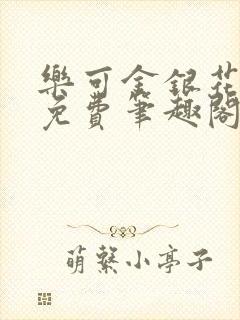 樂可金銀花
免費筆趣閣
萌繫小亭子